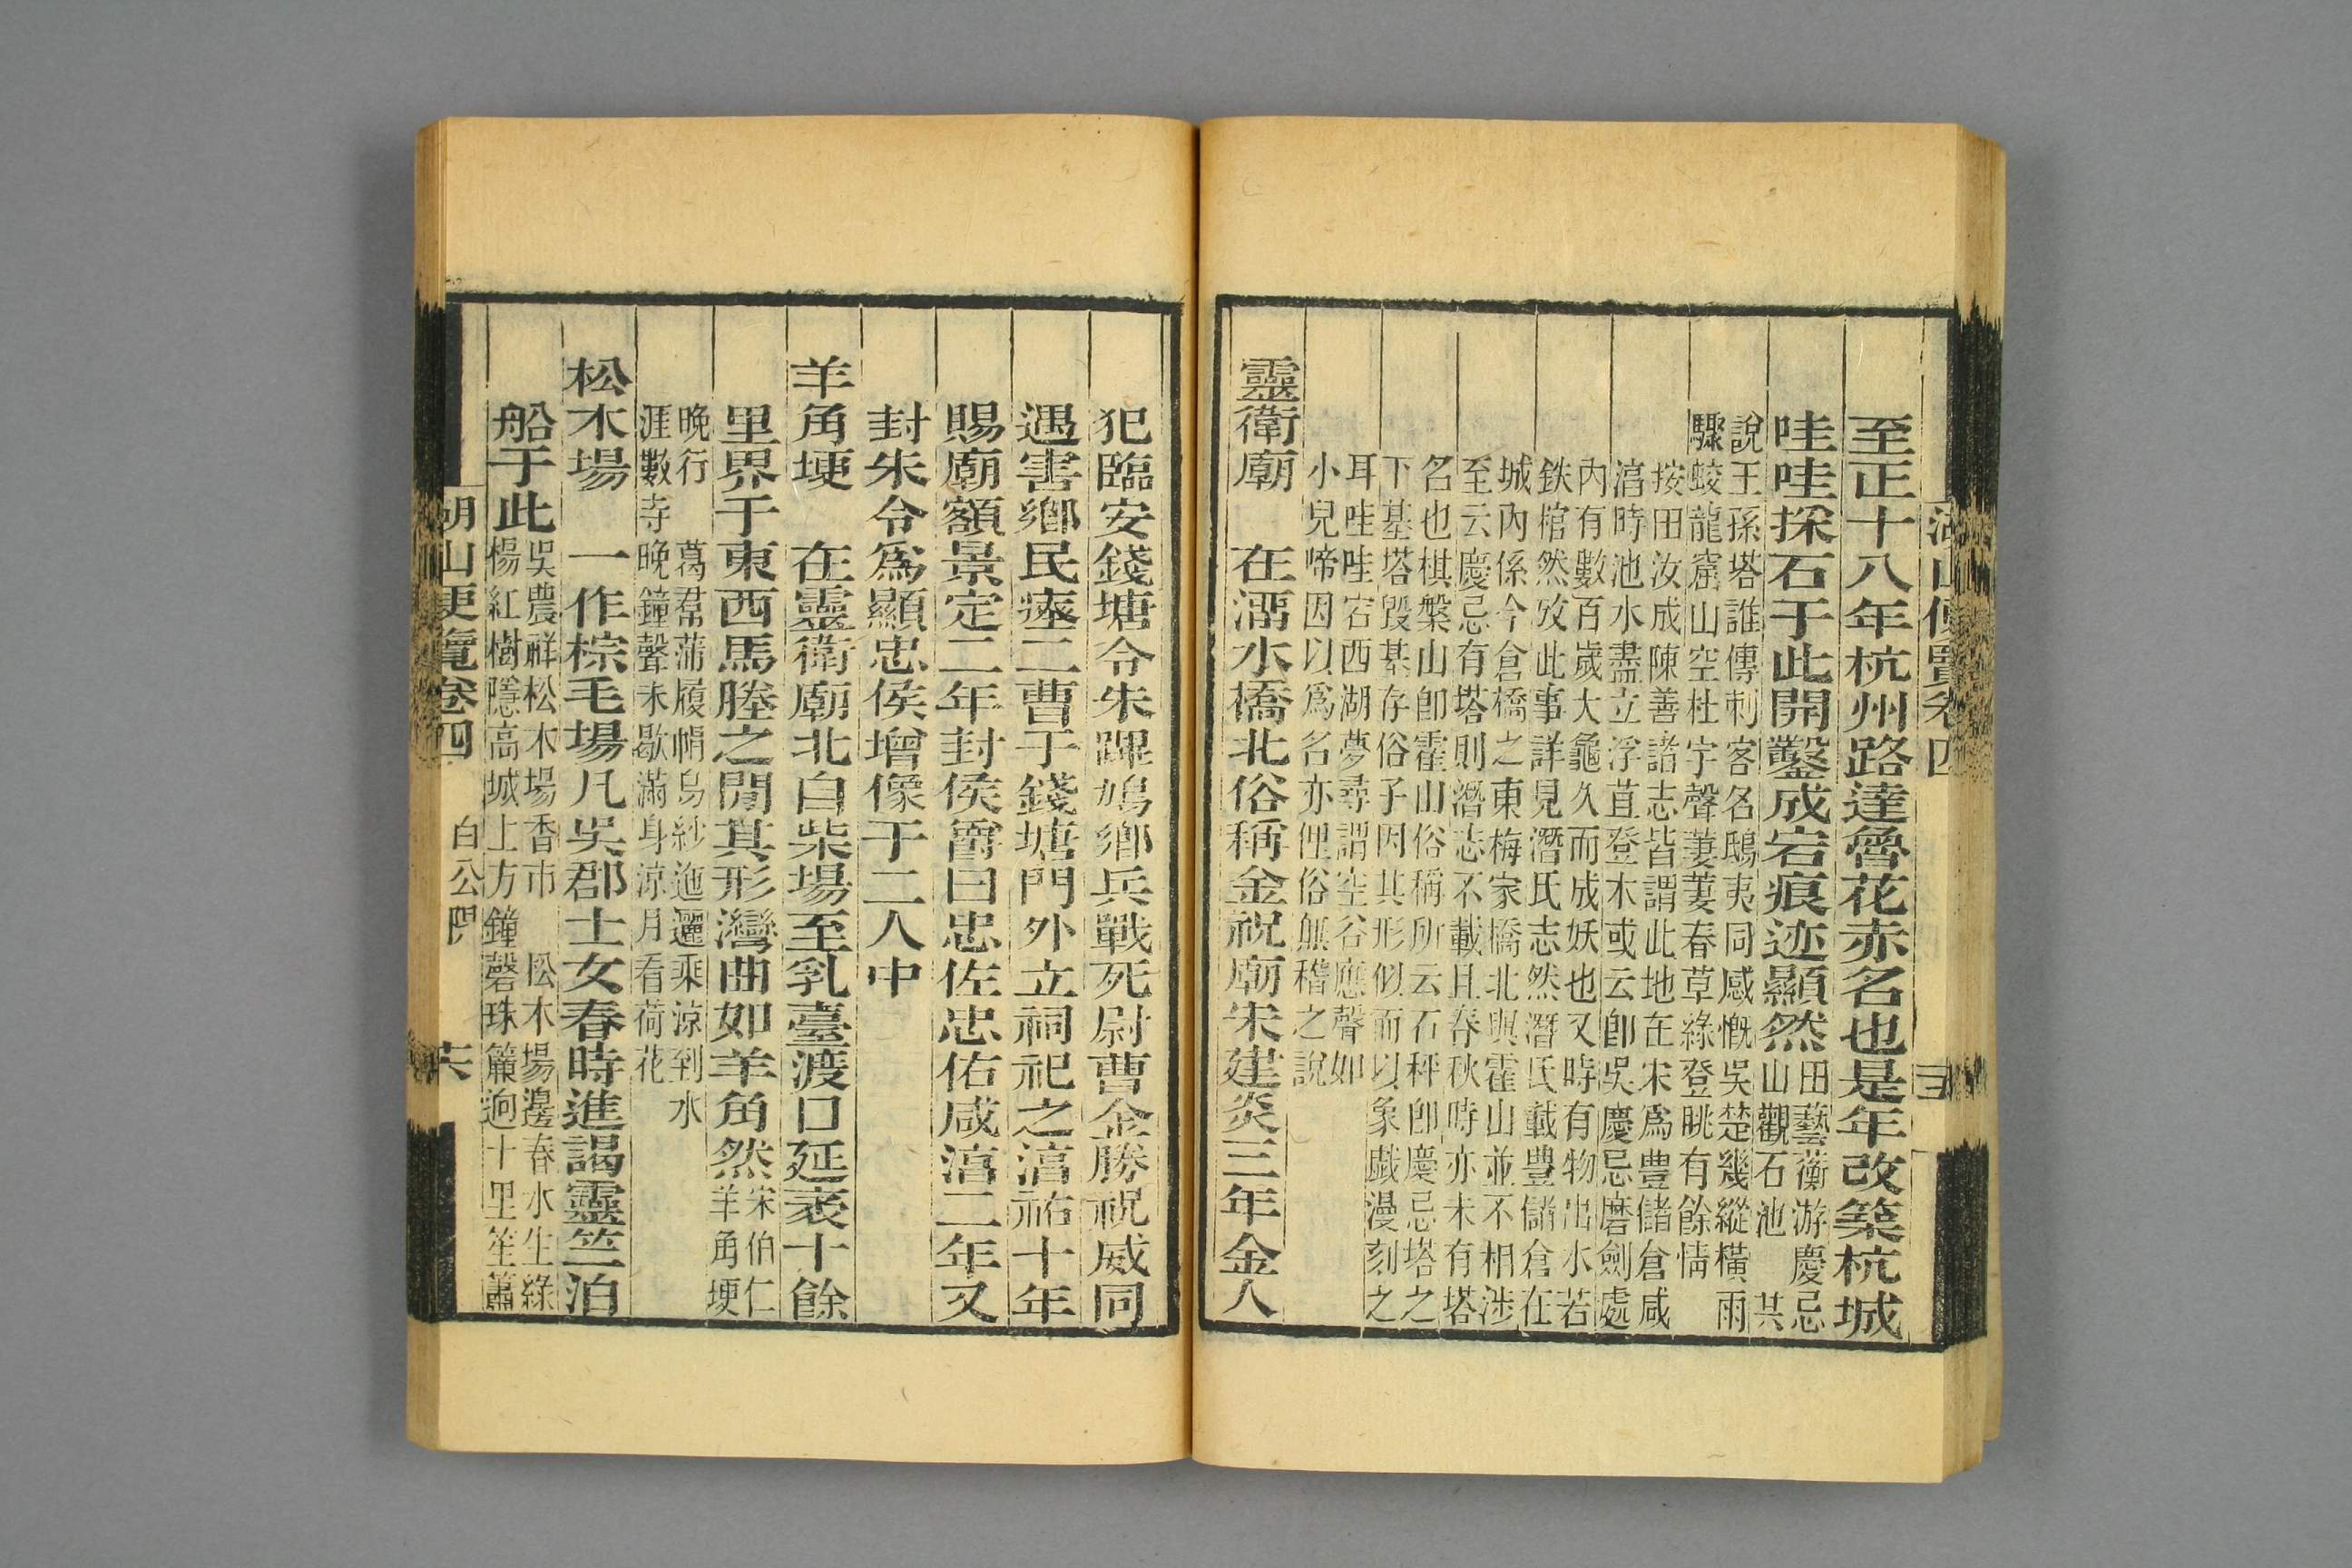 湖山便覽卷四
至正十八年杭州路達魯花赤名也是年改築杭城
哇哇採石于此開鑿成宕痕迹顯然田藝蘅游慶忌
山觀石池 其
說王孫塔誰傳刺客名鴟夷同感慨吳楚幾縱橫雨
驟蛟龍窟山空杜宇聲萋萋春草綠登眺有餘情
按田汝成陳善諸志皆謂此地在宋爲豊儲倉咸
淳時池水盡立浮苴登木或云卽吳慶忌磨劍處
內有數百歲大龜久而成妖也又時有物出水若
鉄棺然攷此事詳見潛氏志然潛氏載豊儲倉在
城內係今倉橋之東梅家橋北與霍山並不相涉
至云慶忌有塔則潛志不載且春秋時亦未有塔
名也棋槃山卽霍山俗稱所云石秤卽慶忌塔之
下基塔毀基存俗子因其形似而以象戲漫刻之
耳哇哇宕西湖夢尋謂空谷應聲如
小兒啼因以爲名亦俚俗無稽之說
靈衛廟 在溜水橋北俗稱金祝廟宋建炎三年金人
犯臨安錢塘令朱蹕鳩鄉兵戰死尉曹金勝祝威同
遇害鄉民瘞二曹于錢塘門外立祠祀之淳祐十年
賜廟額景定二年封侯爵曰忠佐忠佑咸淳二年又
封朱令爲顯忠侯增像于二人中
羊角埂 在靈衛廟北自柴場至乳臺渡口延袤十餘
里界于東西馬塍之閒其形灣曲如羊角然宋伯仁
羊角埂
晚行 萬君蒲履幘烏紗迤邐乘涼到水
涯數寺晚鐘聲未歇滿身涼月看荷花
松木場 一作棕毛場凡吳郡士女春時進謁靈竺泊
船于此吳農祥松木場香市 松木場邊春水生綠
楊紅樹隱高城上方鐘磬珠簾迥十里笙簫
白公隄
湖山便覽卷四
六